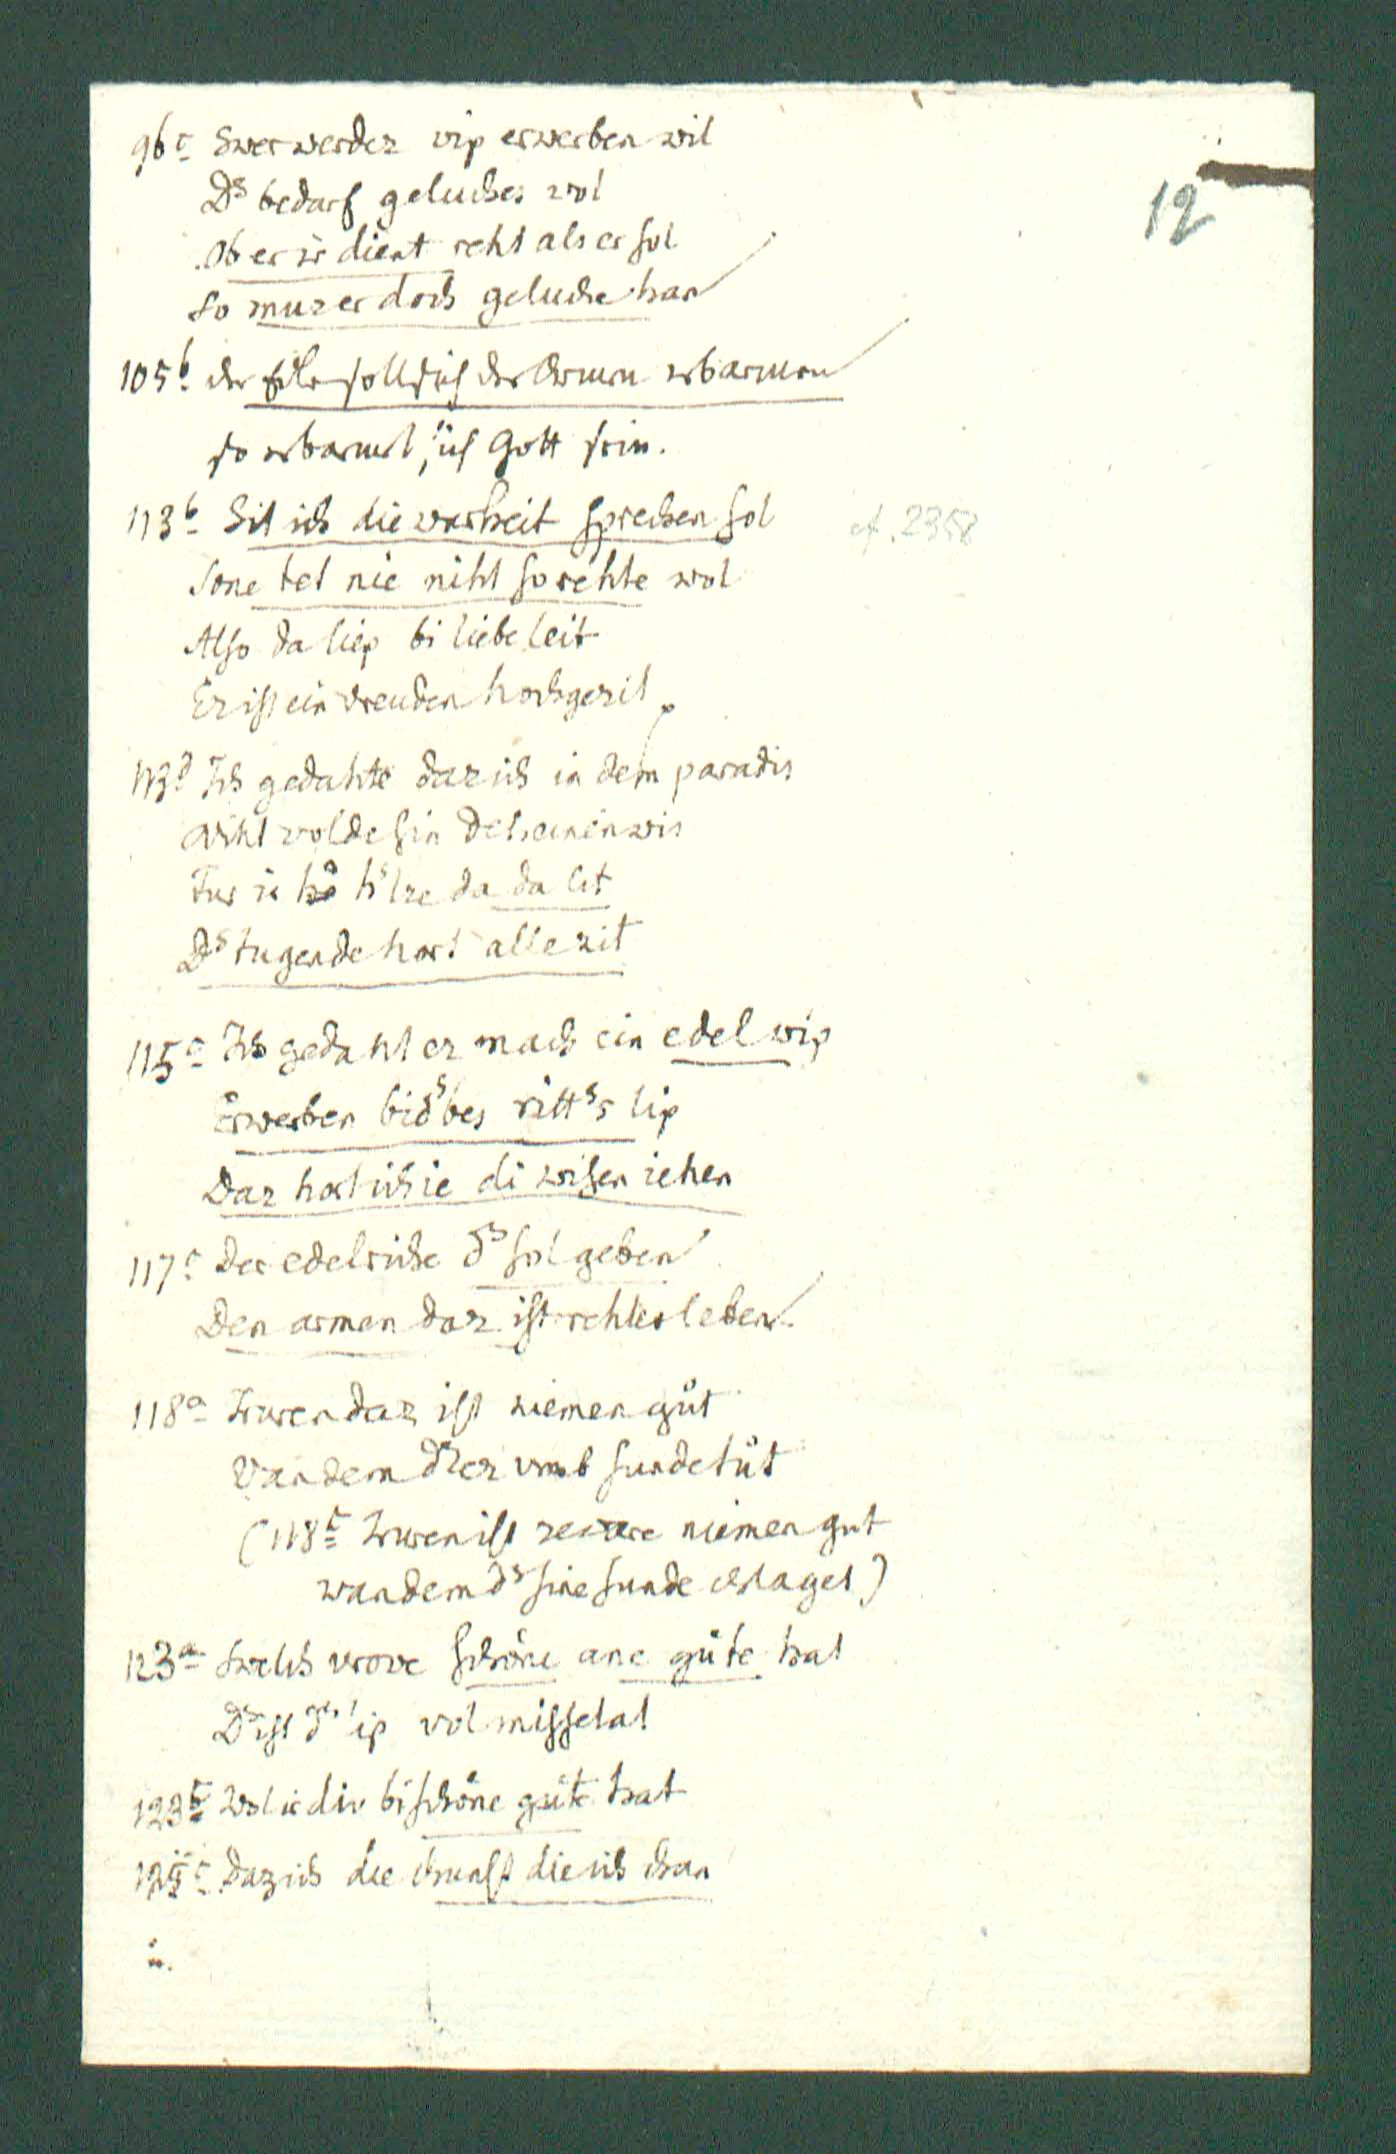 12
96c Swer werdez vip erwerben wil
Ds bedarf geluches wol
Ob er ir dient reht als er sol
So muz er doch geluche han
105b der Edle soll sich der Armen erbarmen
so erbarmt sich Gott sein.
113b Sit ich die warheit sprechen sol cf. 2358
Sone tet nie niht so rehte wol
Also da liep bi liebe leit
Ez ist ein vreuden hochgezit
113d Ich gedahte daz ich in dem paradis
Niht volde sin deheinen wis
Fur ir hs lze da da lit
Ds tugende hort alle zit
115c Ich gedaht ez mach ein edel wip
Erwerben bidsbes rittss lip
Daz hort ich ie di wisen iehen
117c Der edel riche ds sol geben
Den armen daz ist rehtes leben
118a Truren daz ist niemen gůt
Van dem dsez vmb sunde tůt
(118c Truren ist ze ware niemen gut
wan dem ds sine sunde chlaget)
123a Swelch vrove schöne ane gůte hat
Ds ist ds lip vol missetat
123b Wol ir div bi schöne gůte hat
125c Daz ich die chunst die ich chan